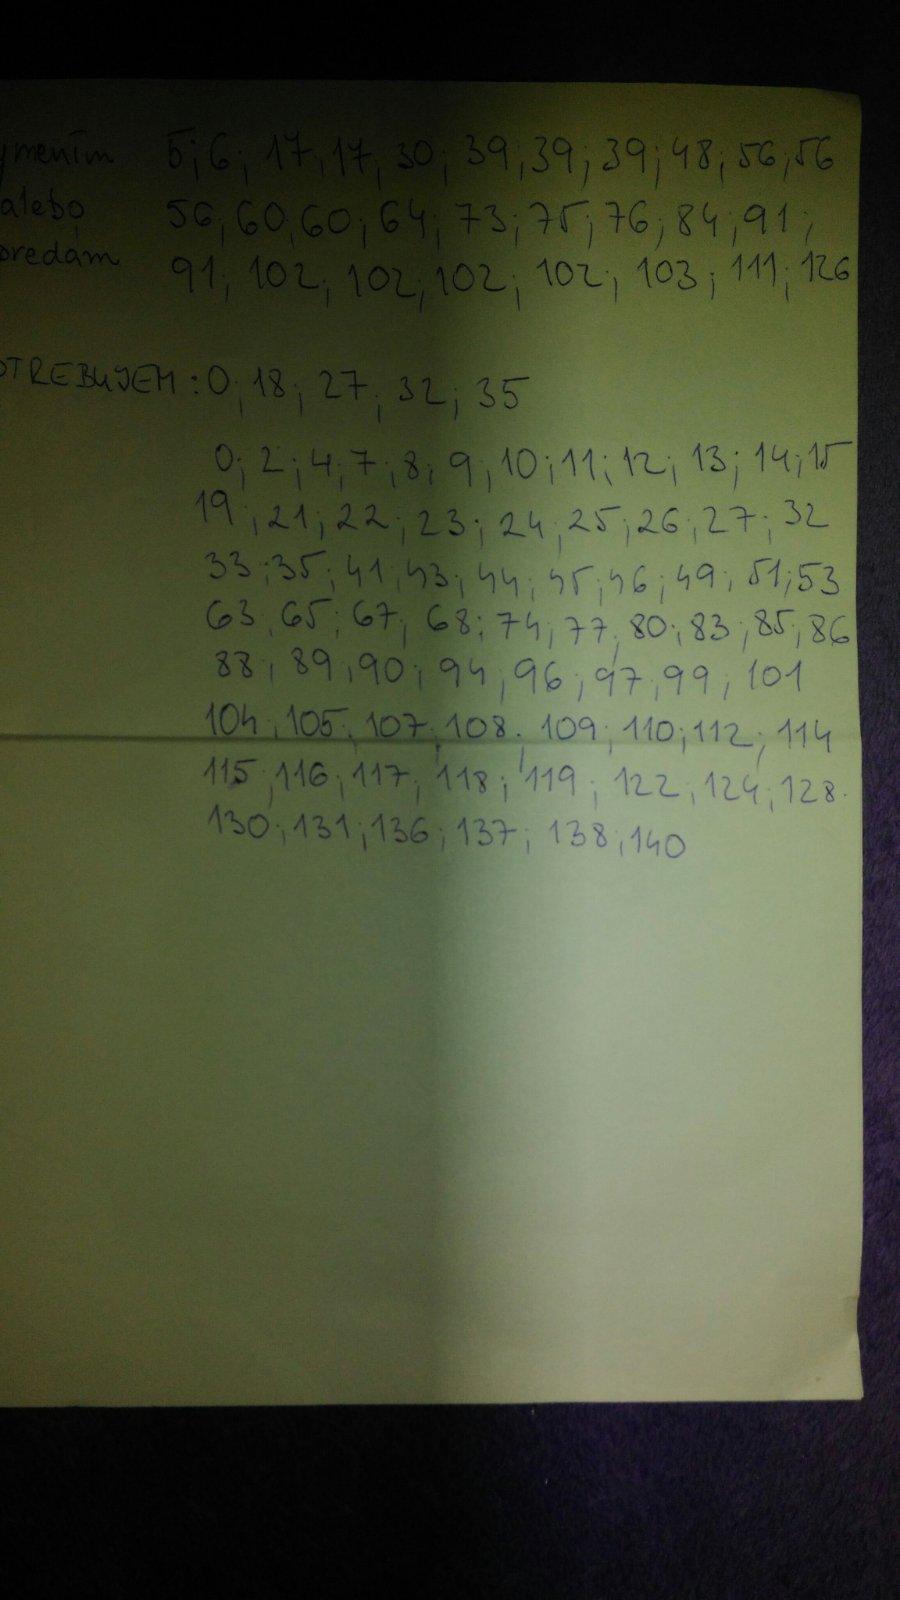 ymením 5; 6; 17; 17; 30; 39; 39; 39; 48; 56; 56
alebo 56; 60; 60; 64; 73; 75; 76; 84; 91;
predám 91; 102; 102; 102; 102; 103; 111; 126
OTREBUJEM: 0; 18; 27; 32; 35
0; 2; 4; 7; 8; 9; 10; 11; 12; 13; 14; 15
19; 21; 22; 23; 24; 25; 26; 27; 32
33; 35; 41; 43; 44; 45; 46; 49; 51; 53
63; 65; 67; 68; 74; 77; 80; 83; 85; 86
88; 89; 90; 94; 96; 97; 99; 101
104; 105; 107; 108; 109; 110; 112; 114
115; 116; 117; 118; 119; 122; 124; 128.
130; 131; 136; 137; 138; 140